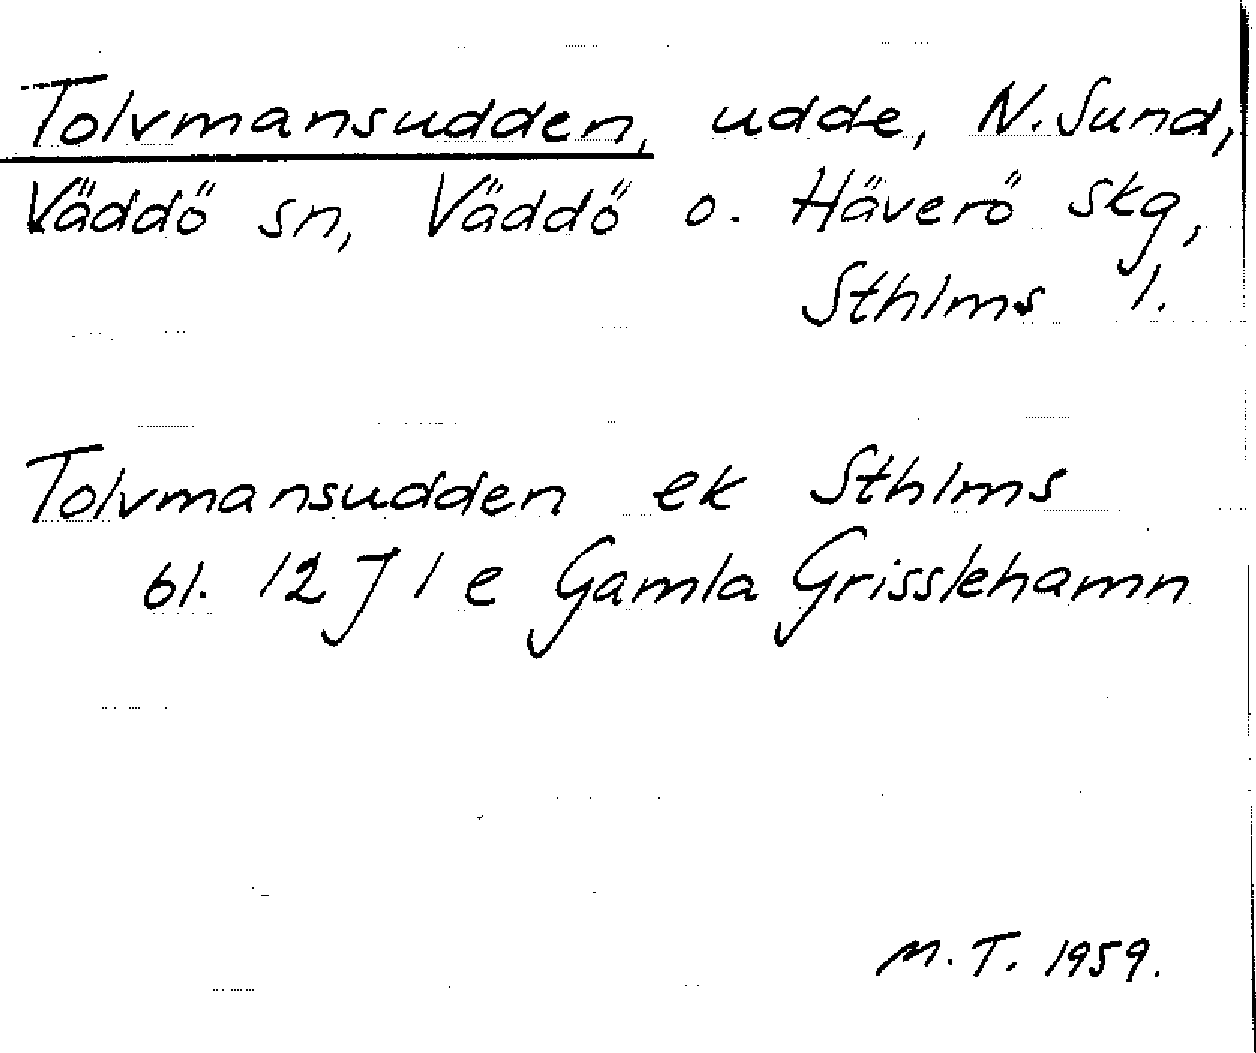 Tolvmansudden, udde, N. Sund,
Väddö sn, Väddö o. Häverö skg,
Sthlms l.
Tolvmansudden ek Sthlms
bl. 12 J 1 e Gamla Grisslehamn
M. T. 1959.